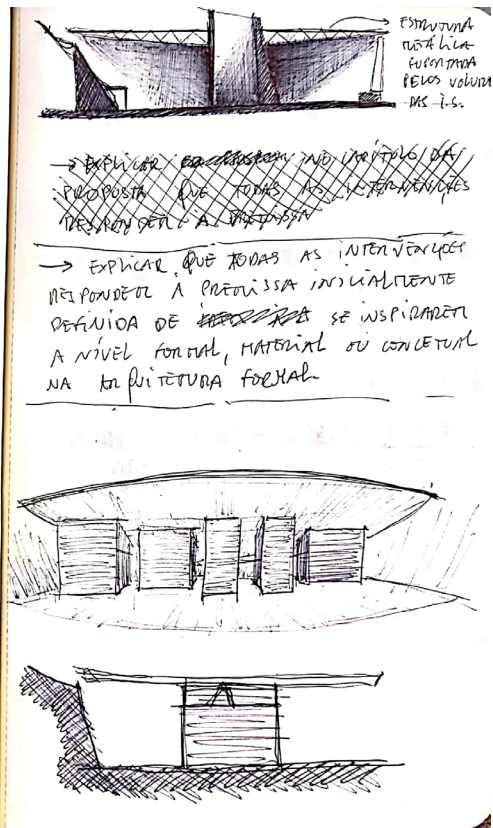 ESTRUTURA
METÁLICA
SUPORTADA
PELOS VOLUMES
DAS I.S.
→ EXPLICAR NO CAPÍTULO DA
PROPOSTA QUE TODAS AS INTERVENÇÕES
RESPONDEM À PREMISSA
→ EXPLICAR QUE TODAS AS INTERVENÇÕES
RESPONDEM À PREMISSA INICIALMENTE
DEFINIDA DE SE INSPIRAREM
A NÍVEL FORMAL, MATERIAL OU CONCETUAL
NA ARQUITETURA FORMAL